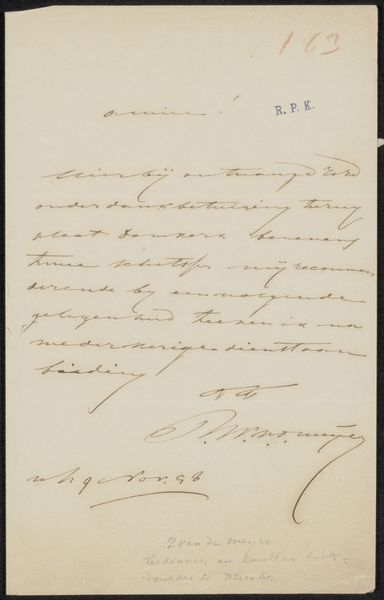 163
amice !
R. P. K.
Hierbij ontvangd UEd
onder dankbetuiging terug
plaat Domkerk benevens
twee schetsjes mij recomman
derende by een volgende
gelegenheid teeken ik na
mederkerige dienstaan
bieding
P. W. v. d. Weijer
9 Nov. 98
P. van de Weyer
teekenaar en kunst en boek=
drukker te Utrecht.